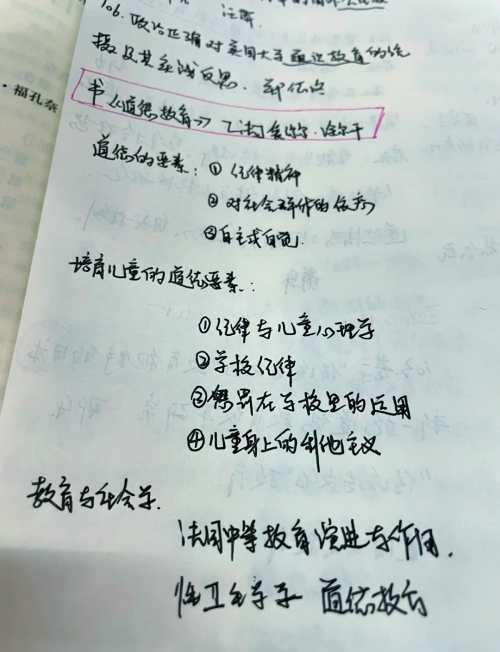 注解.
106. 政治正确对美国大学通识教育的冲
摄及其实践反思. 郭依
书《道德教育》 [法]爱弥尔·涂尔干
道德的要素: ① 纪律精神
② 对社会群体的依恋
③ 自主或自觉.
培育儿童的道德要素:
① 纪律与儿童心理学
② 学校纪律
③ 惩罚在学校里的运用
④ 儿童身上的利他主义
教育与社会学.
法国中等教育演进与作用.
卫生学 道德教育
·福孔奈